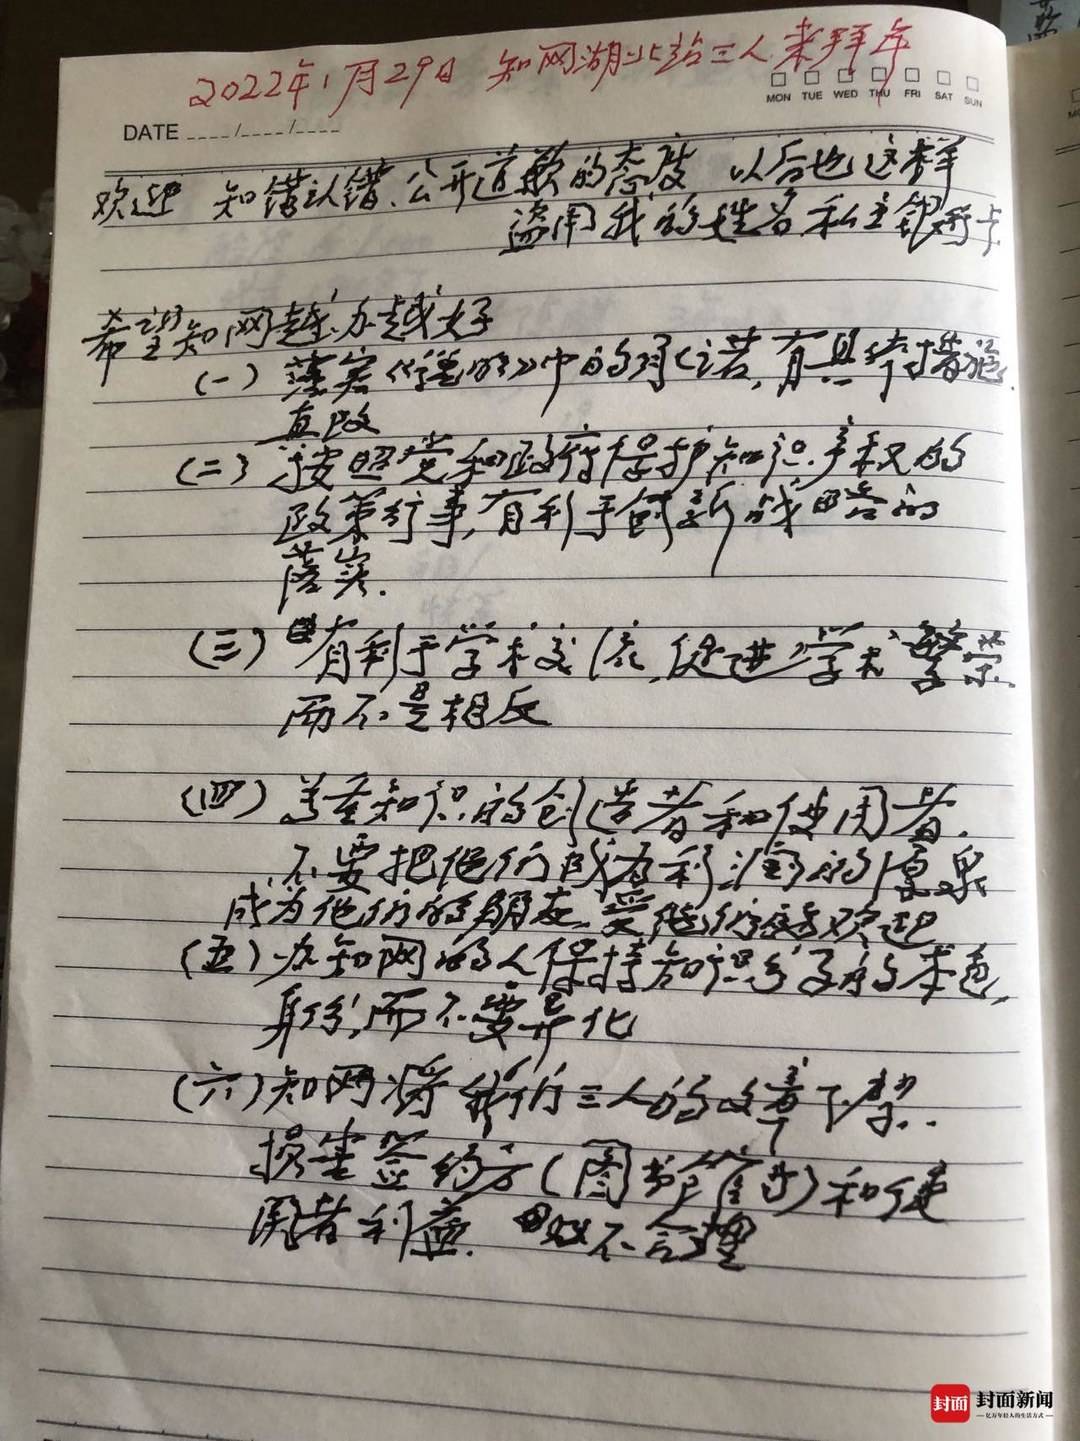 2022年1月29日 知网湖北站三人来拜年
MON TUE WED THU FRI SAT SUN
DATE ____/____/____
欢迎 知错认错、公开道歉的态度 以后也这样
盗用我的姓名私立银行卡
希望知网越办越好
(一) 落实《说明》中的承诺,有具体措施
直改
(二) 按照党和政府保护知识产权的
政策行事,有利于创新战略的
落实.
(三) 有利于学术交流,促进学术繁荣
而不是相反
(四) 尊重知识的创造者和使用者.
不要把他们成为利润的源泉
成为他们的朋友,受他们的欢迎
(五) 办知网的人保持知识分子的本色,
身份,而不要异化
(六) 知网将我们三人的文章下架..
损害签约方(图书馆等)和使
用者利益. 极不合理
封面 封面新闻
亿万年轻人的生活方式